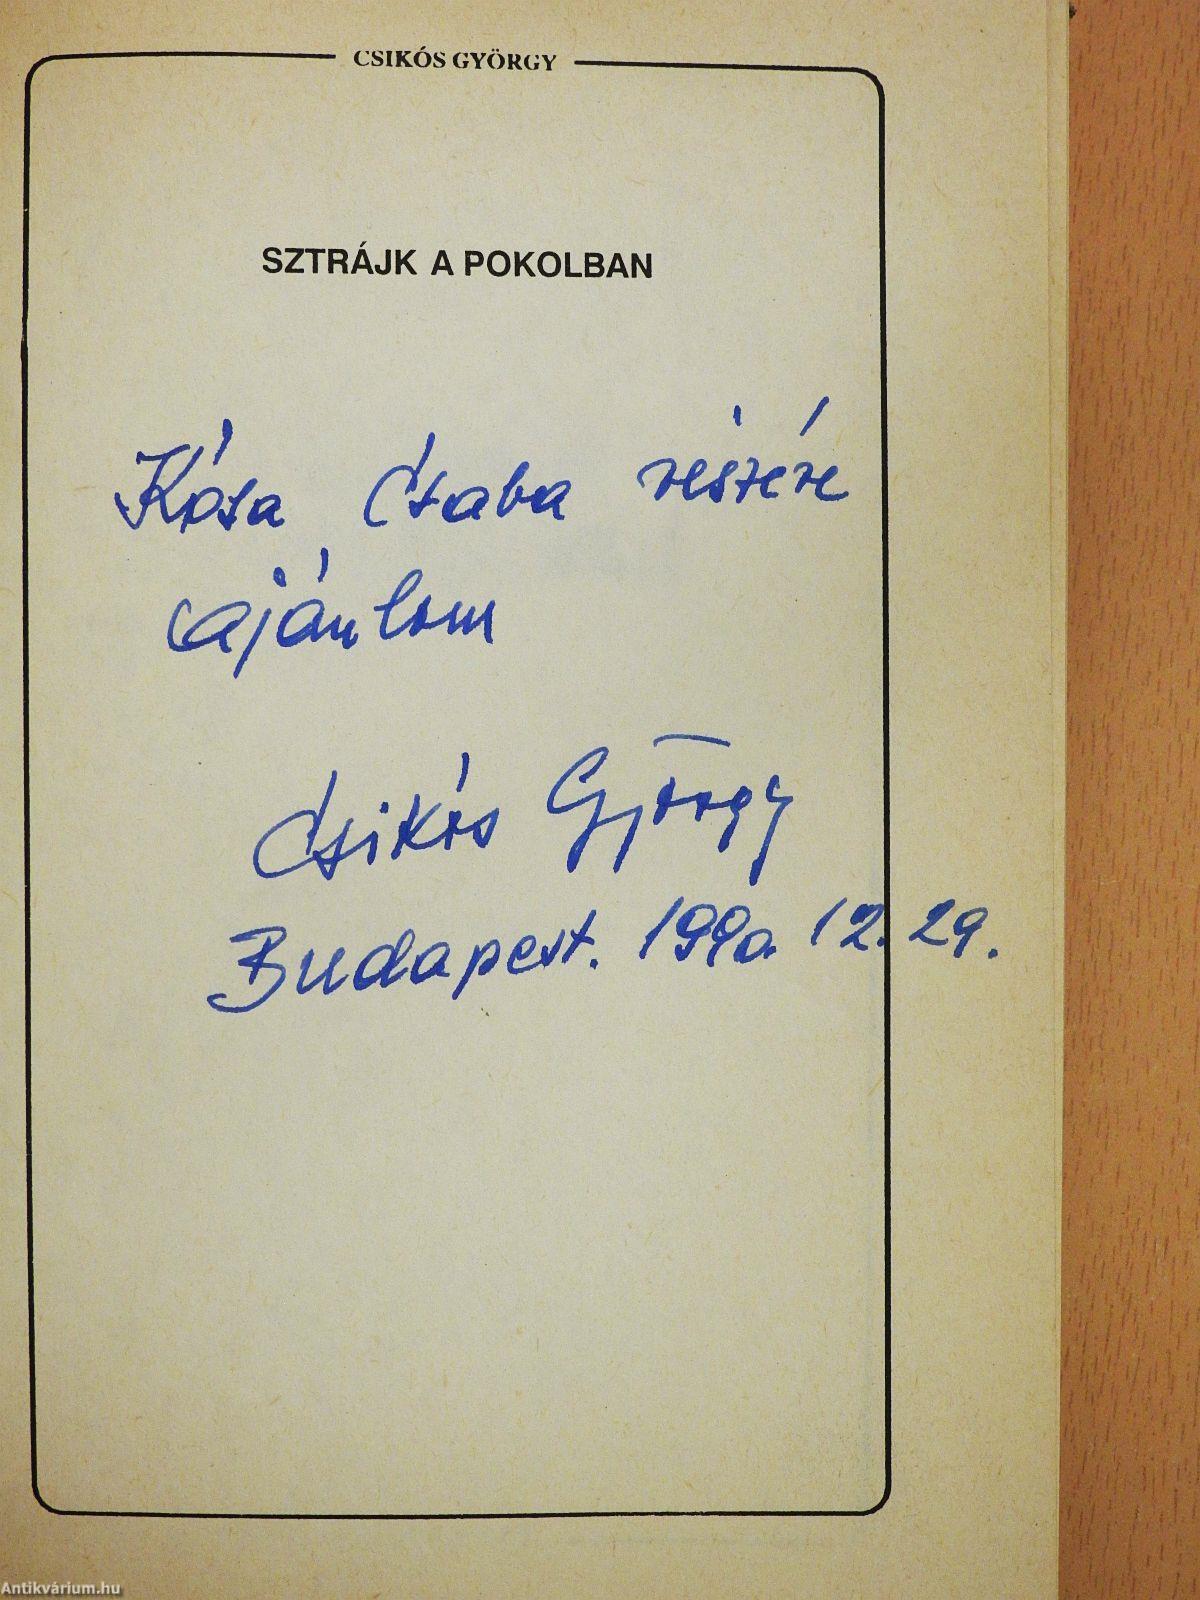 CSIKÓS GYÖRGY
SZTRÁJK A POKOLBAN
Kósa Csaba részére
ajánlom
Csikós György
Budapest. 1990. 12. 29.
Antikvárium.hu